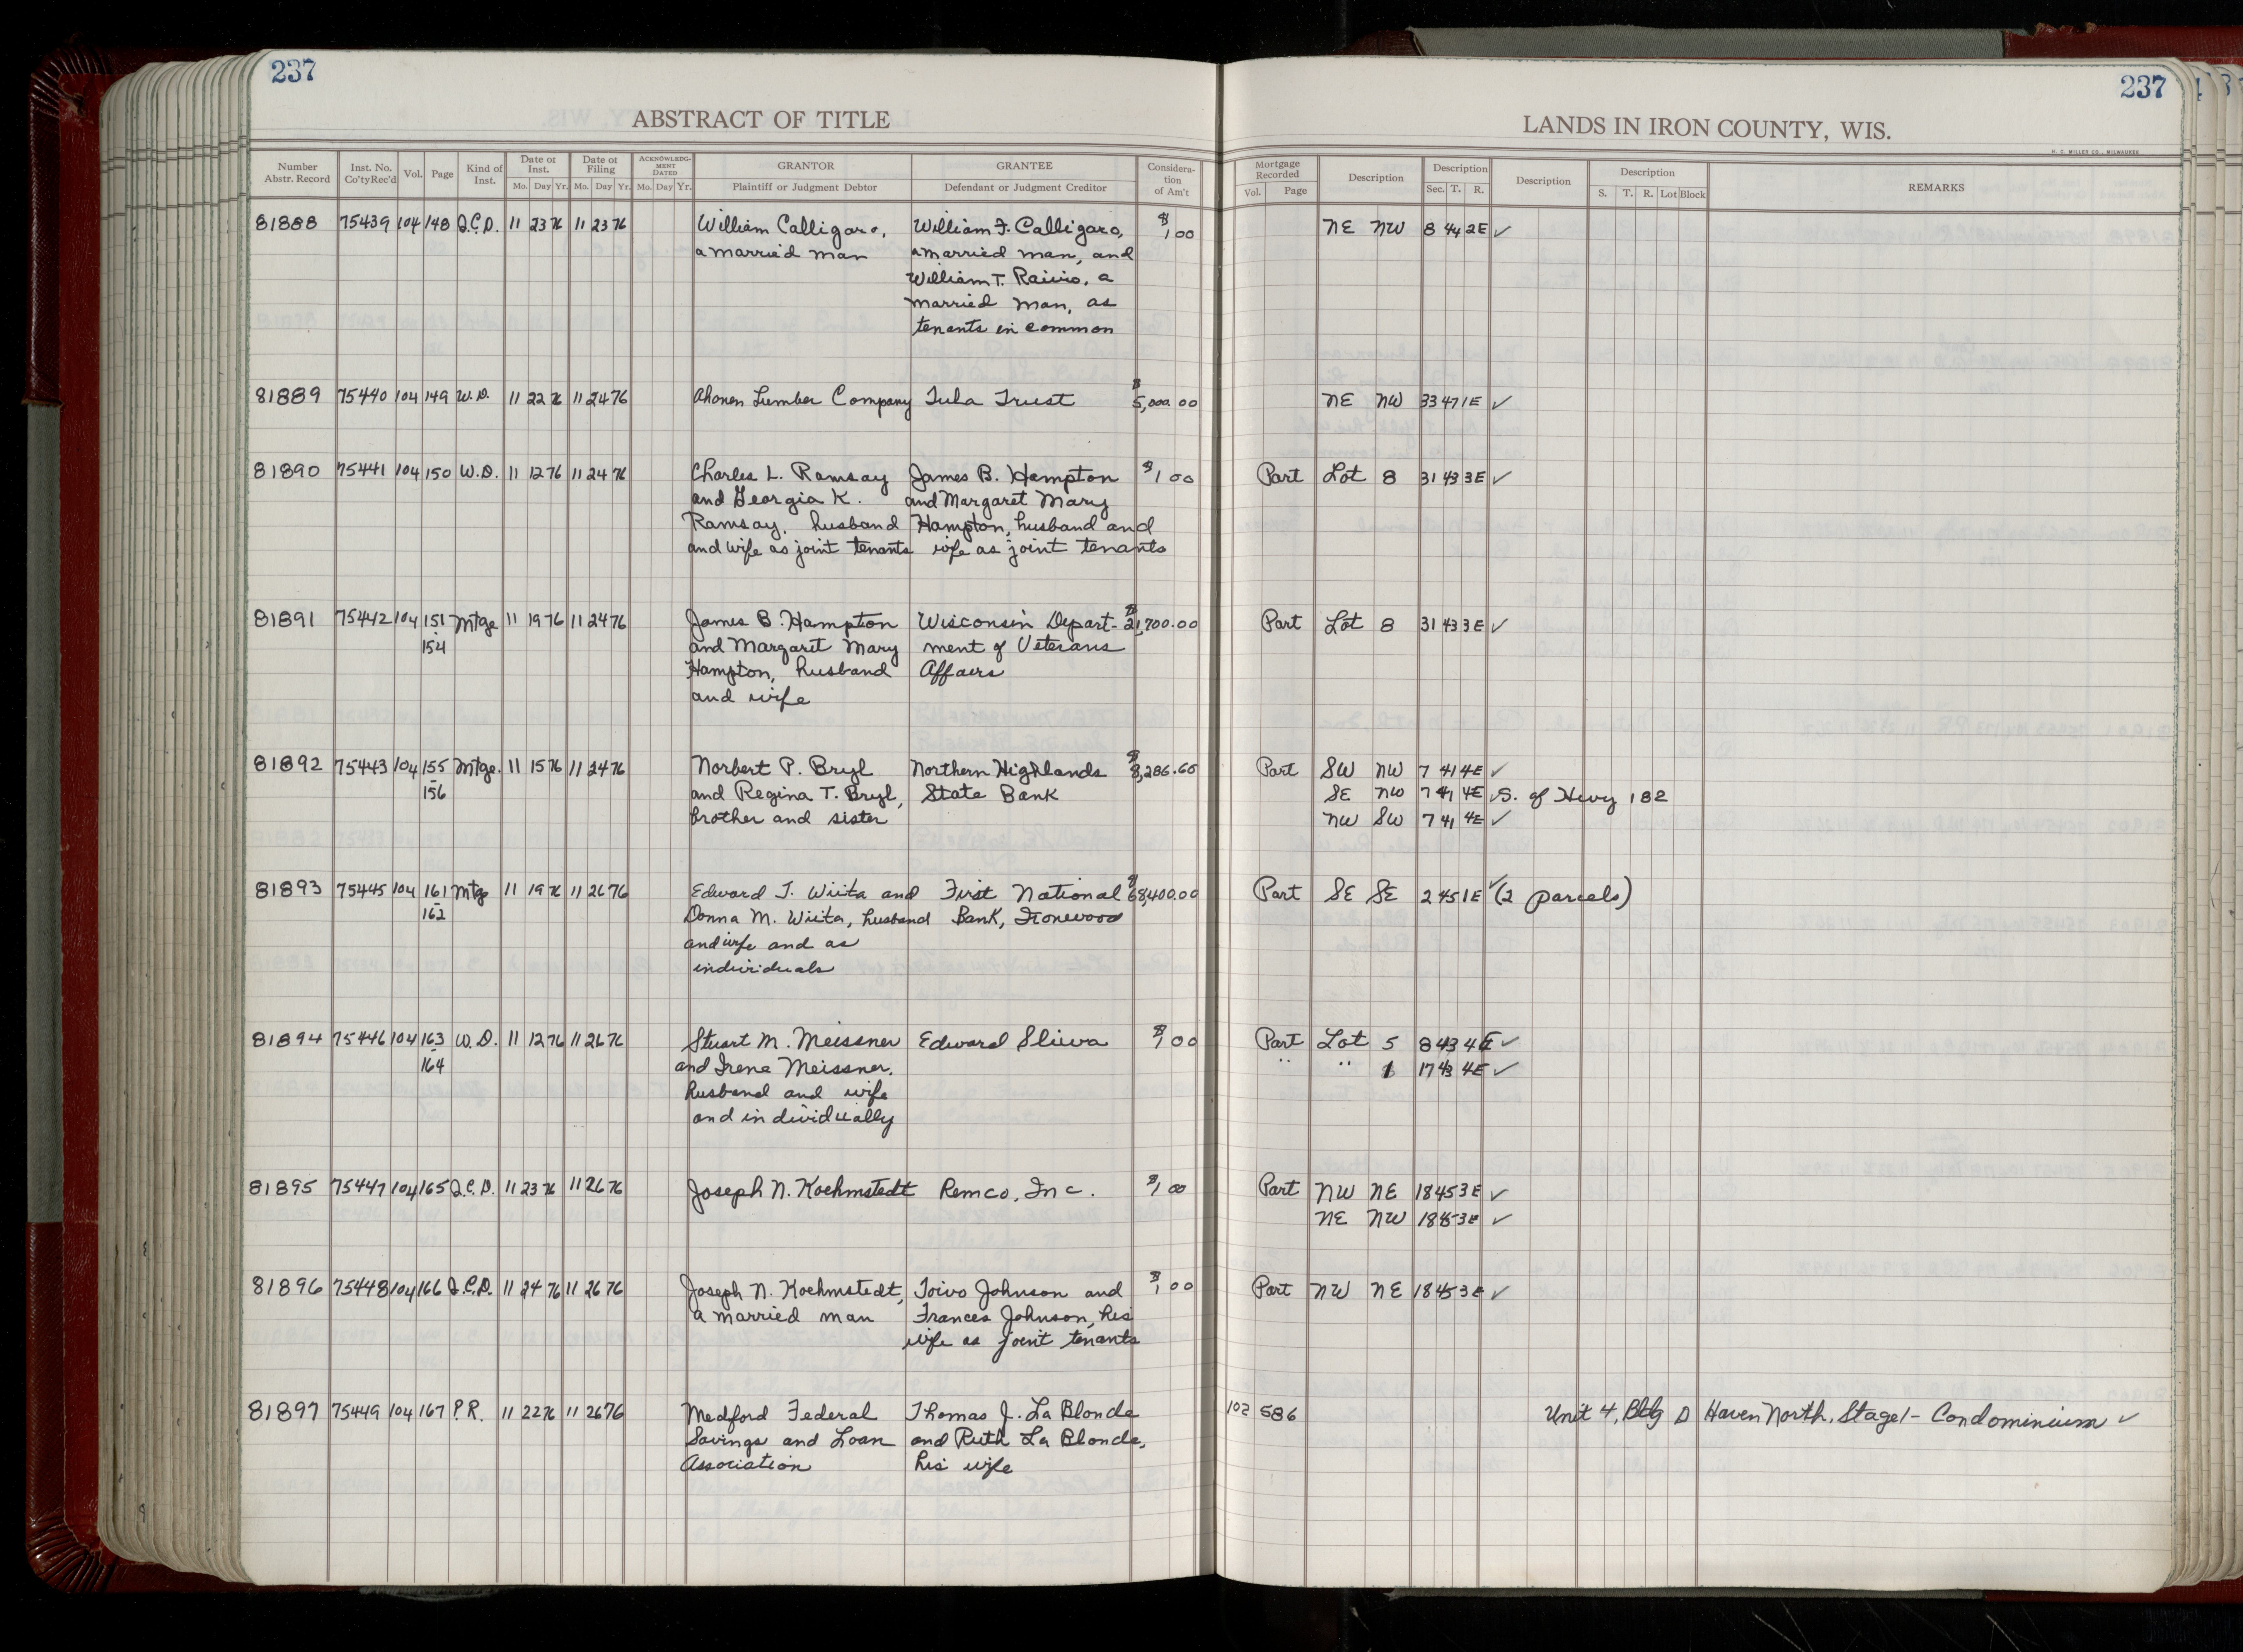 237
237
ABSTRACT OF TITLE
LANDS IN IRON COUNTY, WIS.
H. C. MILLER CO., MILWAUKEE
Number Abstr. Record Inst. No. Co'ty Rec'd Vol. Page Kind of Inst. Date of Inst. Mo. Day Yr. Date of Filing Mo. Day Yr. ACKNOWLEDGMENT DATED Mo. Day Yr. GRANTOR Plaintiff or Judgment Debtor GRANTEE Defendant or Judgment Creditor Consideration of Am't Mortgage Recorded Vol. Page Description Description Sec. T. R. Description Description S. T. R. Lot Block REMARKS
81888 75439 104 148 Q.C.D. 11 23 76 11 23 76 William Calligaro, William F. Calligaro, $1.00 NE NW 8 44 2E ✓
a married man a married man, and
William T. Raivio, a
married man, as
tenants in common
81889 75440 104 149 W.D. 11 22 76 11 24 76 Ahonen Lumber Company Tula Trust $5,000.00 NE NW 33 47 1E ✓
81890 75441 104 150 W.D. 11 12 76 11 24 76 Charles L. Ramsay James B. Hampton $1.00 Part Lot 8 31 43 3E ✓
and Georgia K. and Margaret Mary
Ramsay, husband Hampton, husband and
and wife as joint tenants wife as joint tenants
81891 75442 104 151 Mtge 11 19 76 11 24 76 James B. Hampton Wisconsin Depart- $21,700.00 Part Lot 8 31 43 3E ✓
154 and Margaret Mary ment of Veterans
Hampton, husband Affairs
and wife
81892 75443 104 155 Mtge. 11 15 76 11 24 76 Norbert P. Bryl Northern Highlands $8,286.60 Part SW NW 7 41 4E ✓
156 and Regina T. Bryl, State Bank SE NW 7 41 4E ✓ S. of Hwy 182
brother and sister NW SW 7 41 4E ✓
81893 75445 104 161 Mtg 11 19 76 11 26 76 Edward J. Wiita and First National $68,400.00 Part SE SE 2 45 1E ✓ (2 parcels)
162 Donna M. Wiita, husband Bank, Ironwood
and wife and as
individuals
81894 75446 104 163 W.D. 11 12 76 11 26 76 Stuart M. Meissner Edward Sliwa $1.00 Part Lot 5 8 43 4E ✓
164 and Irene Meissner, " " 1 17 43 4E ✓
husband and wife
and individually
81895 75447 104 165 Q.C.D. 11 23 76 11 26 76 Joseph N. Koehmstedt Remco, Inc. $1.00 Part NW NE 18 45 3E ✓
NE NW 18 45 3E ✓
81896 75448 104 166 Q.C.D. 11 24 76 11 26 76 Joseph N. Koehmstedt, Toivo Johnson and $1.00 Part NW NE 18 45 3E ✓
a married man Frances Johnson, his
wife as joint tenants
81897 75449 104 167 P.R. 11 22 76 11 26 76 Medford Federal Thomas J. La Blonde 102 586 Unit 4, Bldg D Haven North, Stage 1 - Condominium ✓
Savings and Loan and Ruth La Blonde,
Association his wife